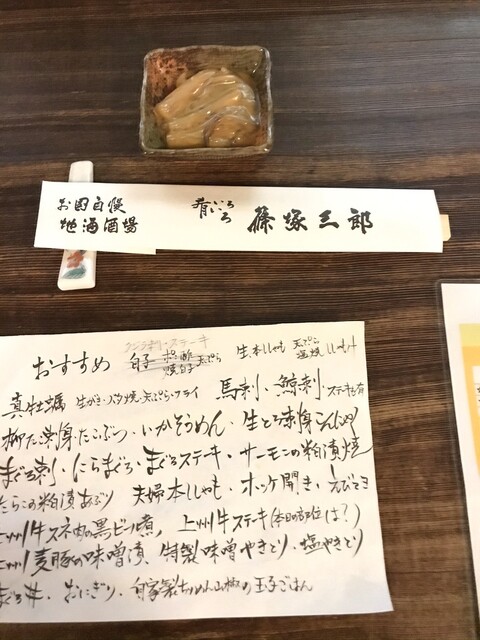 お国自慢
地酒酒場
篠塚三郎
おすすめ
白子 ポン酢 天ぷら
生本ししゃも 天ぷら
真牡蠣 生がき・バタ焼・天ぷら・フライ 馬刺・鯨刺・ステーキも有
たこぶつ・いかそうめん・生とろ
まぐろ刺・にらまぐろ・まぐろステーキ・サーモンの粕漬焼
たらこの粕漬あぶり 夫婦本ししゃも・ホッケ開き・えびてき
上州牛スネ肉の黒ビール煮, 上州牛ステーキ(本日の部位は?)
上州麦豚の味噌漬, 特製味噌やきとり・塩やきとり
まぐろ丼・おにぎり・自家製ちりめん山椒の玉子ごはん